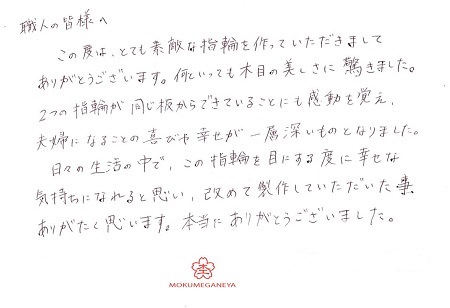 職人の皆様へ
この度は、とても素敵な指輪を作っていただきまして
ありがとうございます。何といっても木目の美しさに驚きました。
2つの指輪が同じ板からできていることにも感動を覚え、
夫婦になることの喜びや幸せが一層深いものとなりました。
日々の生活の中で、この指輪を目にする度に幸せな
気持ちになれると思い、改めて製作していただいた事、
ありがたく思います。本当にありがとうございました。
MOKUMEGANEYA